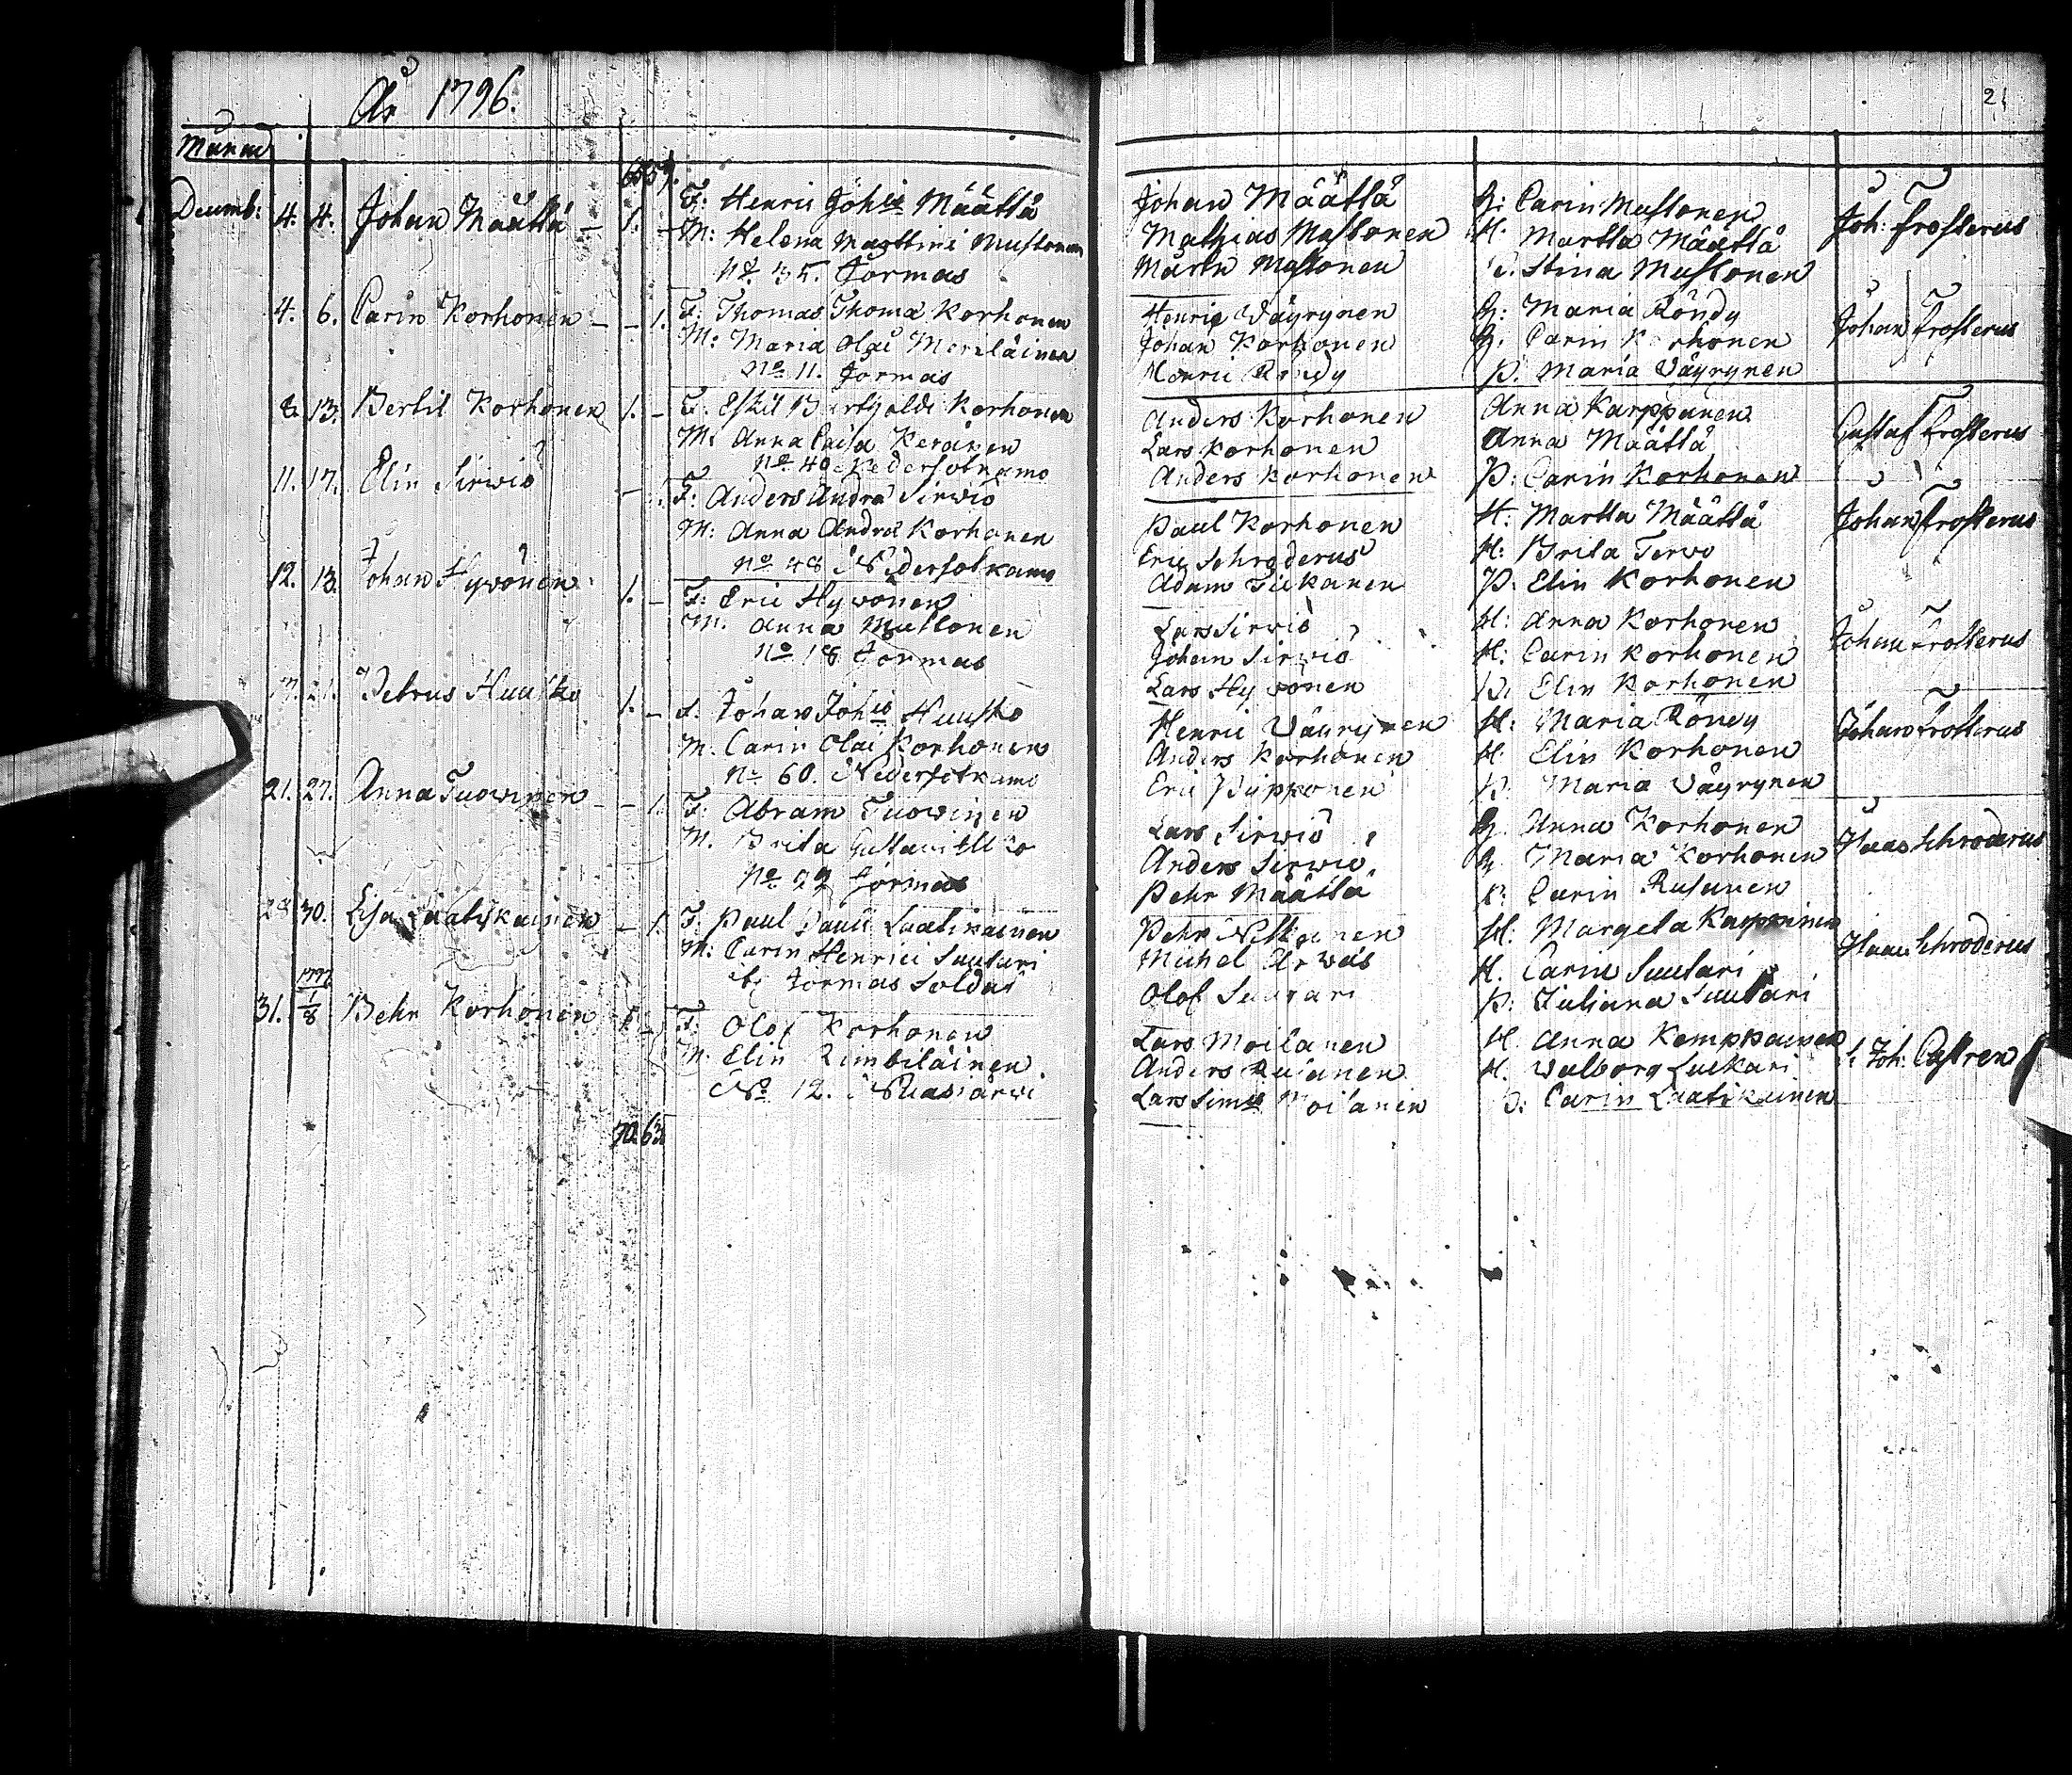 År 1796.
21
Månad
65 57.
Decemb: 4. 4. Johan Määttä – 1. –
F: Henric Joh:is Määttä
M: Helena Marttini Mustonen
N:o 35. Jormas
Johan Määttä
Mathias Mustonen
Mårtn Mustonen
H: Carin Mustonen
H: Martta Määttä
P. Stina Mustonen
Joh: Frosterus
4. 6. Carin Korhonen – – 1.
F: Thomas Thomæ Korhonen
M: Maria Olai Meriläinen
N:o 11. Jormas
Henric Väyrynen
Johan Korhonen
Henric Röndy
H: Maria Röndy
H. Carin Korhonen
P. Maria Väyrynen
Johan Frosterus
8. 13. Bertil Korhonen 1. –
F. Eskil Korhonen
M. Anna Caisa Keränen
N:o 40 Nedersotkamo
Anders Korhonen
Lars Korhonen
Anders Korhonen
Anna Karppanen
Anna Määttä
P: Carin Korhonen
Gustaf Frosterus
11. 17. Elin Sirwiö –
F: Anders Andræ Sirwiö
M: Anna Andræ Korhonen
N:o 48 Nedersotkamo
Paul Korhonen
Eric Schroderus
Adam Tickanen
H: Martta Määttä
H: Brita Terwo
P. Elin Korhonen
Johan Frosterus
12. 13. Johan Hyvönen. 1. –
F: Eric Hyvönen
M. Anna Mustonen
N:o 18 Jormas
Lars Sirwiö
Johan Sirwiö
Lars Hyvönen
H: Anna Korhonen
H: Carin Korhonen
P. Elin Korhonen
Johan Frosterus
21. Petrus Huusko 1. –
F. Johan Joh:is Huusko
M. Carin Olai Korhonen
N:o 60. Nedersotkamo
Henric Väyrynen
Anders Korhonen
Eric Piipponen
H: Maria Röndy
H: Elin Korhonen
P. Maria Väyrynen
Johan Frosterus
21. 27. Anna Tuovinen – – 1.
F: Abram Tuovinen
M. Brita Gustavi
N:o Jormas
Lars Sirwiö
Anders Sirwiö
Pehr Määttä
H. Anna Korhonen
H. Maria Korhonen
P. Carin Rusanen
Isaac Schroderus
28 30. Lisa Laatikainen – 1.
F. Paul Pauli Laatikainen
M: Carin Henrici Suutari
Jormas Soldat
Pehr
Michel
Olof Suutari
H: Margeta Karppinen
H. Carin Suutari
P: Juliana Suutari
Isaac Schroderus
31. 1797 1/8 Pehr Korhonen 1. –
F: Olof Korhonen
M. Elin Rimbiläinen.
N:o 12. Nuasjärwi
Lars Moilanen
Anders Rusanen
Lars Moilanen
H. Anna Kemppainen
H. Walborg Luckari
P. Carin Laatikainen
Joh: Castren
70. 63.